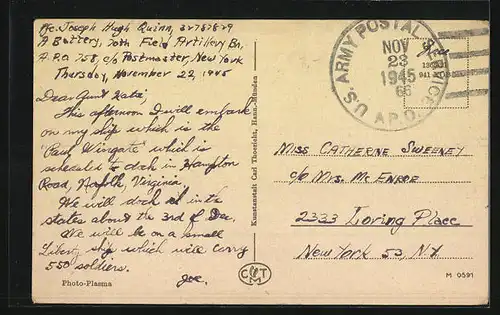 Pfc. Joseph Hugh Quinn, 32787829
A Battery, 70th Field Artillery Bn.
A.P.O 758, c/o Postmaster, New York
Thursday, November 22, 1945
Dear Aunt Kate:
This afternoon I will embark
on my ship which is the
"Paul Wingate" which is
scheduled to dock in Hampton
Road, Norfolk, Virginia.
We will dock in the
states about the 3rd of Dec.
We will be on a small
Liberty ship which will carry
550 soldiers.
Joe.
Photo-Plasma
Kunstanstalt Carl Thoericht, Hann.-Münden
CTM
U.S. ARMY POSTAL SERVICE
A.P.O.
NOV
23
1945
Free
Miss Catherine Sweeney
c/o Mrs. McEnroe
2333 Loring Place
New York 53, N.Y.
M 0591